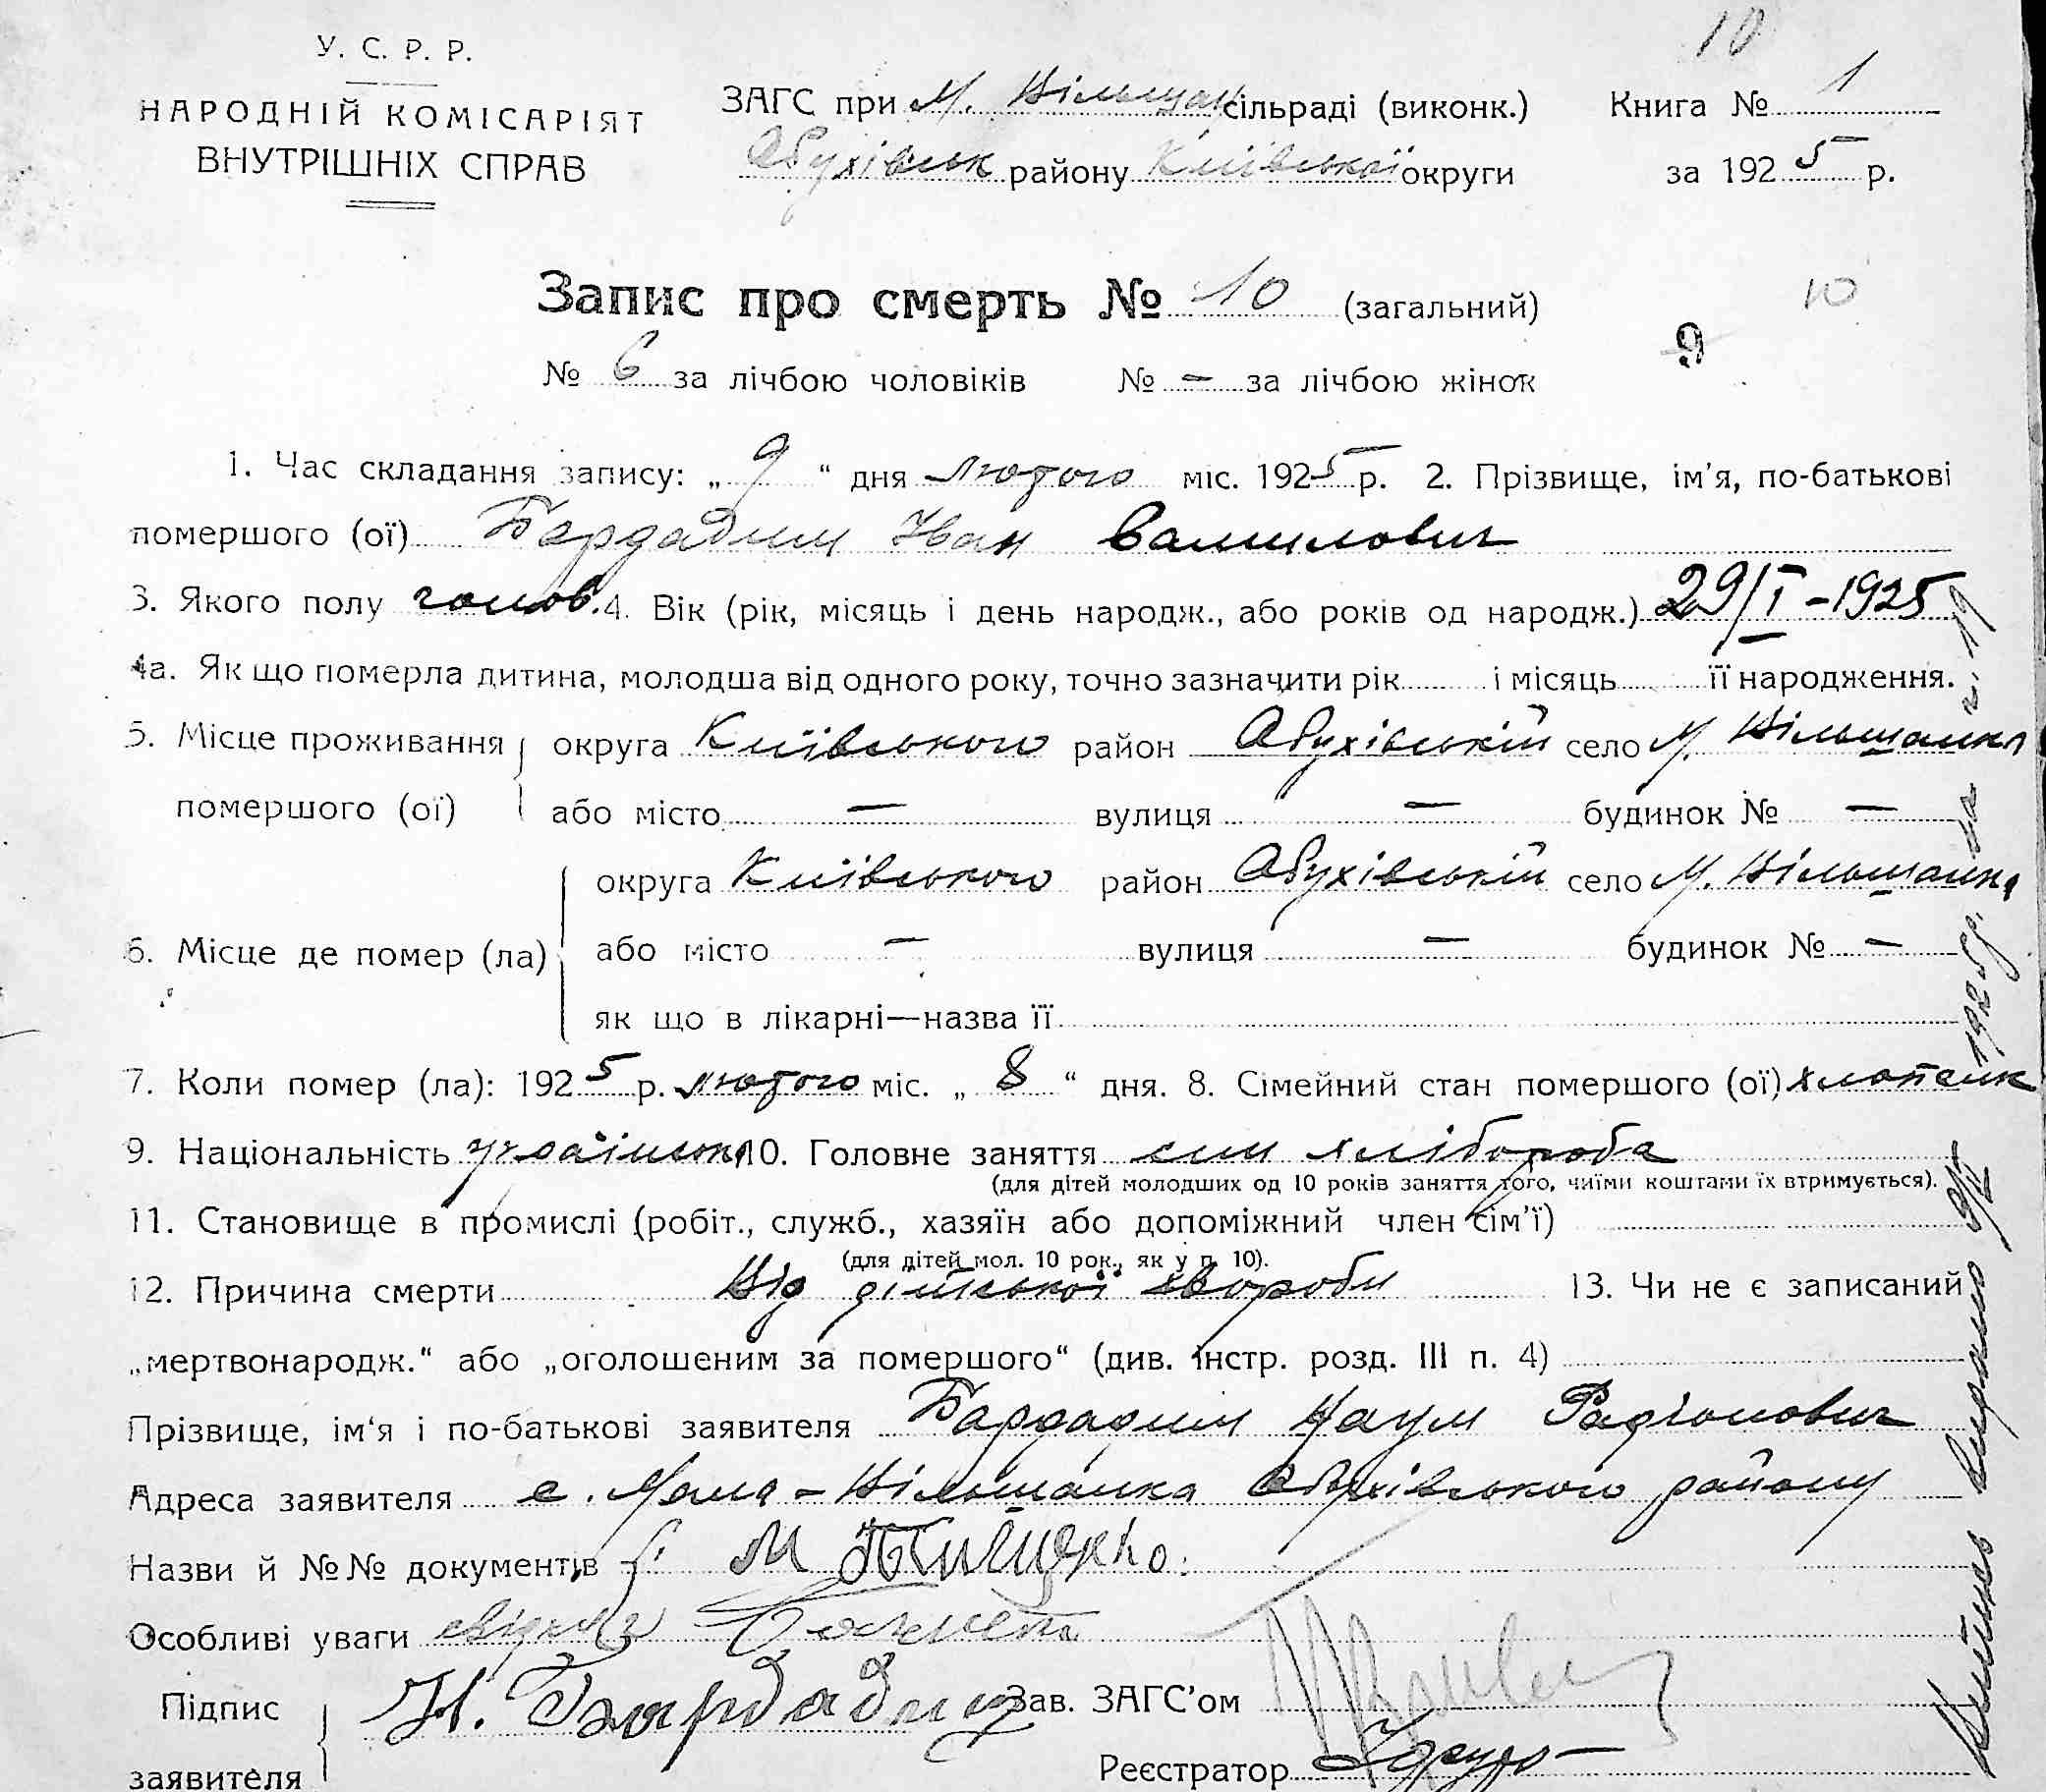 10
У. С. Р. Р.
НАРОДНІЙ КОМІСАРІЯТ
ВНУТРІШНІХ СПРАВ
ЗАГС при М. Вільшан сільраді (виконк.)
Обухівськ району Київської округи
Книга № 1
за 1925 р.
Запис про смерть № 10 (загальний)
10
9
№ 6 за лічбою чоловіків № — за лічбою жінок
1. Час складання запису: „ 9 “ дня лютого міс. 1925 р. 2. Прізвище, ім'я, по-батькові
помершого (ої) Бардадим Іван
3. Якого полу чолов. 4. Вік (рік, місяць і день народж., або років од народж.) 29/I – 1925
4а. Як що померла дитина, молодша від одного року, точно зазначити рік і місяць її народження.
5. Місце проживання помершого (ої)
округа Київського район Обухівській село М. Вільшанка
або місто — вулиця — будинок № —
6. Місце де помер (ла)
округа Київського район Обухівській село М. Вільшанка
або місто — вулиця — будинок № —
як що в лікарні—назва її
7. Коли помер (ла): 1925 р. лютого міс. „ 8 “ дня. 8. Сімейний стан помершого (ої) хлопчик
9. Національність 10. Головне заняття син хлібороба
(для дітей молодших од 10 років заняття того, чиїми коштами їх втримується).
11. Становище в промислі (робіт., служб., хазяїн або допоміжний член сім'ї)
(для дітей мол. 10 рок., як у п. 10).
12. Причина смерти Від дітської хвороби 13. Чи не є записаний
„мертвонародж.“ або „оголошеним за помершого“ (див. інстр. розд. III п. 4)
Прізвище, ім'я і по-батькові заявителя Бардадим Наум Радіонович
Адреса заявителя с. Мала – Вільшанка Обухівського району
Назви й №№ документів М
Особливі уваги
Підпис заявителя Н. Бардадим
Зав. ЗАГС'ом
Реєстратор
Витяг видано 9/II 1925 р. за ч. 19